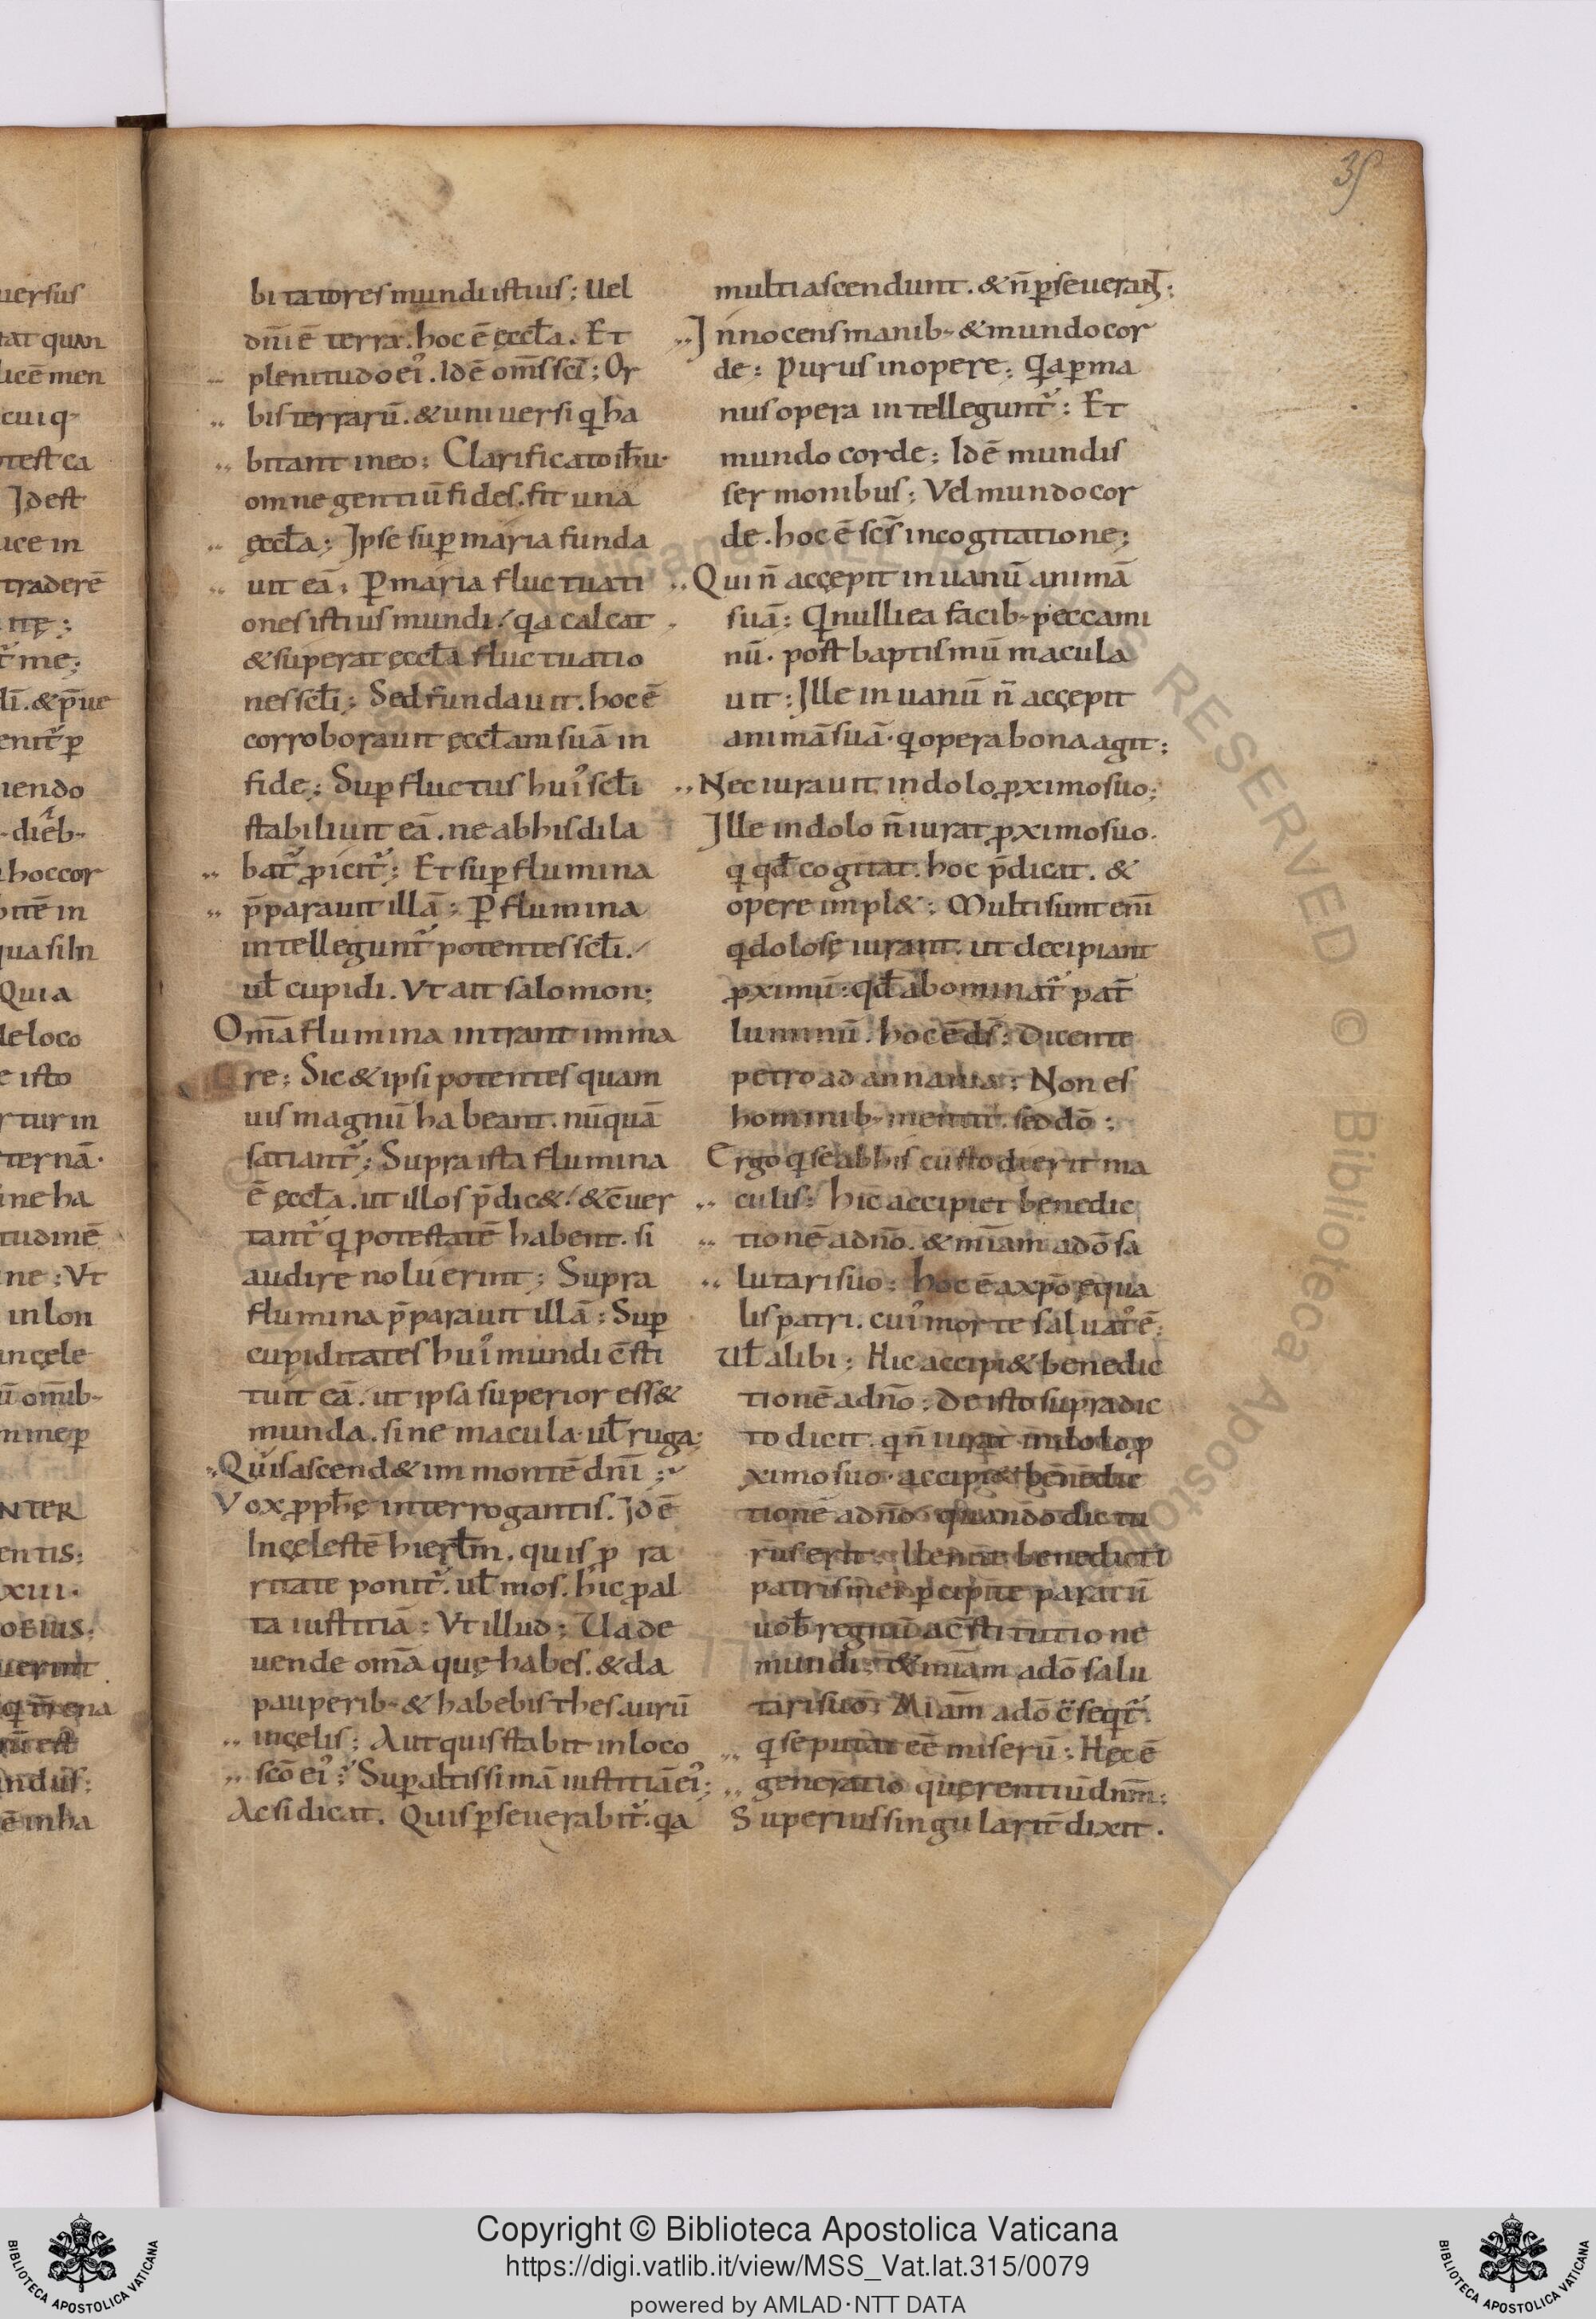 35
bitatores mundi istius; Uel
dn̄i ē terra. hoc ē ęccl̄a. Et
plenitudo ei᾽. Idē om̄s sc̄i; Or
bis terrarū. & uniuersi q̇ ha
bitant in eo; Clarificato ih̄u.
omne gentiū fides. fit una
ęccl̄a; Ipse suꝑ maria funda
uit eā; P̲ maria fluctuati
ones istius mundi. qa calcat
& superat ęccl̄a fluctuatio
nes scl̄i; Sed fundauit. hoc ē
corroborauit ęccl̄am suā in
fide; Suꝑ fluctus hui᾽ scl̄i
stabiliuit eā. ne ab his dila
bat᷑ ꝓicit᷑; Et suꝑ flumina
p̄parauit illā; P̲ flumina
intellegunt᷑ potentes scl̄i.
ul̄ cupidi. Ut ait salomon;
Om̄a flumina intrant in ma
re; Sic & ipsi potentes quam
uis magnū habeant. nūquā
satiant᷑; Supra ista flumina
ē ęccl̄a. ut illos p̄dic&. & c̄uer
tant᷑ q̇ potestatē habent. si
audire noluerint; Supra
flumina p̄parauit illā; Suꝑ
cupiditates hui᾽ mundi c̄sti
tuit eā. ut ipsa superior ess&
munda. sine macula ul̄ ruga;
Quis ascend& in montē dn̄i;
Vox ꝓph̄ę interrogantis. Idē
In cęlestē hierl̄m. quis ꝓ ra
ritate ponit᷑. ul̄ mos. hic ꝓ al
ta iustitiā; Ut illud; Uade
uende om̄a quę habes. & da
pauperib; & habebis thesaurū
in cęlis; Aut quis stabit in loco
sc̄o ei᾽; Suꝑ altissimā iustitiā ei᾽;
Ac si dicat. Quis ꝑseuerabit᷑. qa
multi ascendunt. & n̄ ꝑseuerant;
Innocens manib; & mundo cor
de; Purus in opere; Qa ꝑ ma
nus opera intellegunt᷑; Et
mundo corde; Idē mundis
sermonibus; Vel mundo cor
de. hoc ē sc̄s in cogitatione;
Qui n̄ accępit in uanū animā
suā; Q̇ nulli ea facib; peccami
nū. post baptismū macula
uit; Ille in uanū n̄ accępit
animā suā. q̇ opera bona agit;
Nec iurauit in dolo ꝓximo suo;
Ille in dolo n̄ iurat ꝓximo suo.
q̇ qd̄ cogitat. hoc p̄dicat. &
opere impl&; Multi sunt eni̅
q̇ dolosę iurant. ut decipiant
ꝓximū; qd̄ abominat᷑ pat᷑
luminū. hoc ē ds̄; Dicente
petro ad annania; Non es
hominib; mentit᷑. sed dō;
Ergo q̇ se ab his custodierit ma
culis; hic accipiet benedic
tionē a dn̄o. & mi̅am a dō sa
lutari suo; hoc ē a xp̄o ęqua
lis patri. cui᾽ morte saluat᾽ ē;
Ul̄ alibi; Hic accipi& benedic
tionē a dn̄o; De isto supradic
to dicit. q̇ n̄ iurat in dolo ꝓ
ximo suo. accipi& benedic
tionē a dn̄o. quando dictu
rus erit; Uenite benedicti
patris mei ꝑcipite paratū
uob̄ regnū a c̄stitutione
mundi; & mi̅am a dō salu
tari suo; Mi̅am a dō c̄seqt᷑.
q̇ se putat eē miserū; Hęc ē
generatio quęrentiū dnm̄;
Superius singularit᷑ dixit.
Copyright © Biblioteca Apostolica Vaticana
https://digi.vatlib.it/view/MSS_Vat.lat.315/0079
powered by AMLAD·NTT DATA
BIBLIOTECA APOSTOLICA VATICANA
BIBLIOTECA APOSTOLICA VATICANA